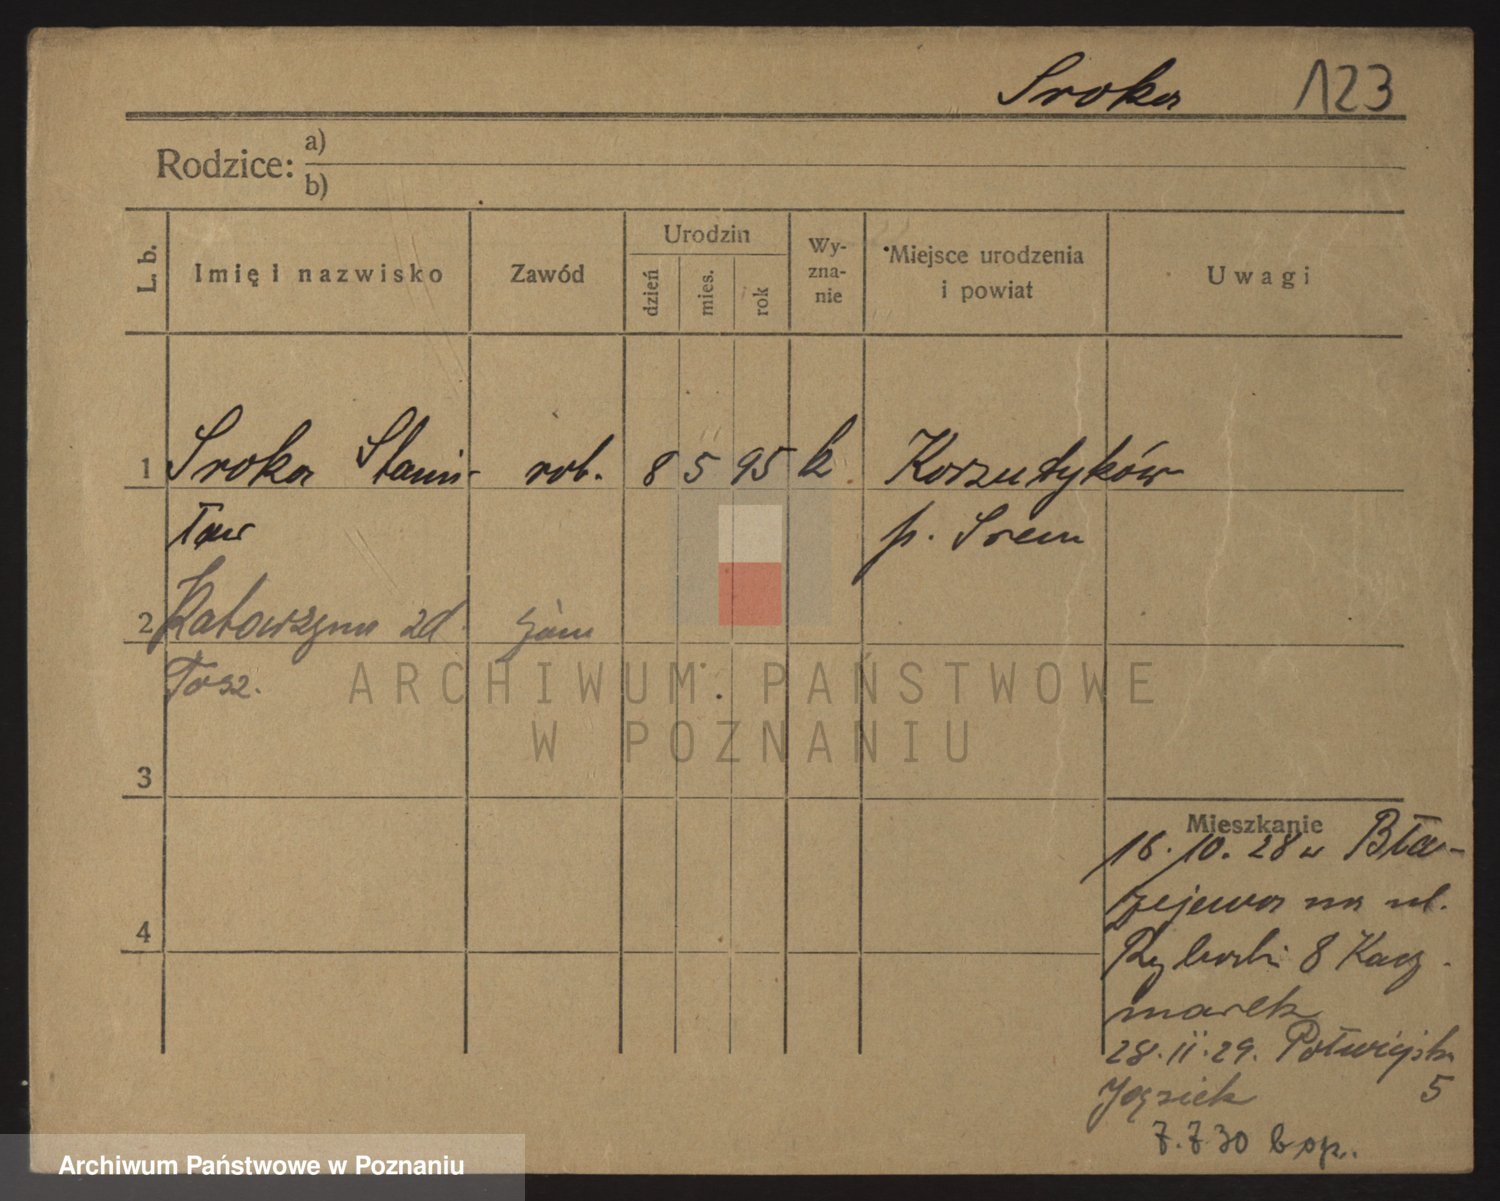 Sroka 123
Rodzice: a)
b)
L. b. Imię i nazwisko Zawód Urodzin dzień mies. rok Wy-zna-nie Miejsce urodzenia i powiat Uwagi
1 Sroka Stanis- rob. 8 5 95 k Korzutyków
ław p. Srem
2 Katarzyna zd.
Tosz.
ARCHIWUM PAŃSTWOWE
W POZNANIU
3
Mieszkanie
16.10.28 w Bła-
żejewa na ul.
4
Rybacki 8 Kacz-
marek
28.11.29. Półwiejsk
5
7.7.30
Archiwum Państwowe w Poznaniu